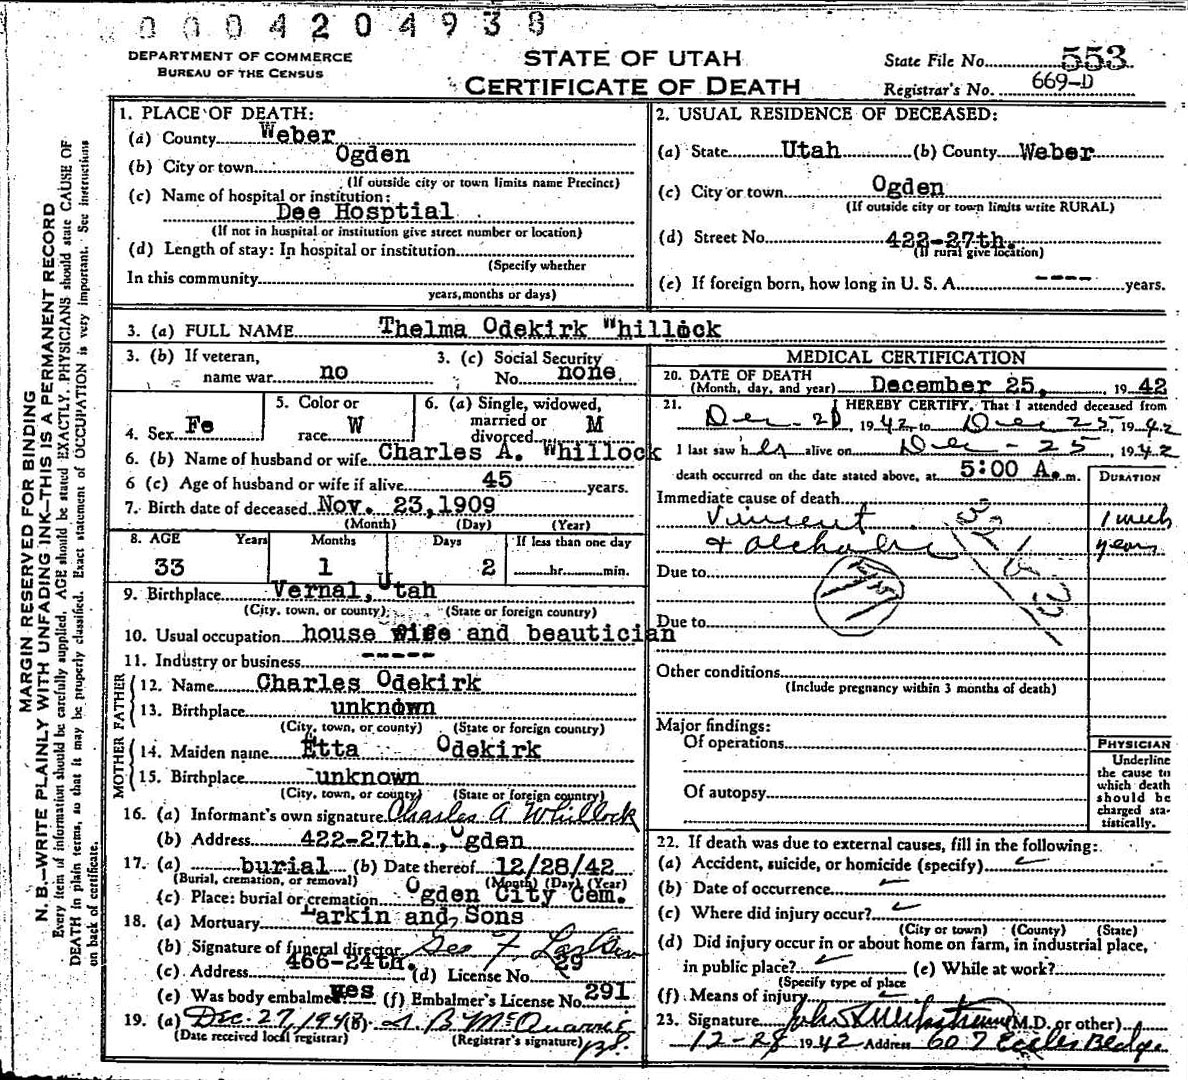 0004204938
DEPARTMENT OF COMMERCE
BUREAU OF THE CENSUS
STATE OF UTAH
CERTIFICATE OF DEATH
State File No. 553
Registrar's No. 669-D
MARGIN RESERVED FOR BINDING
N. B.—WRITE PLAINLY WITH UNFADING INK—THIS IS A PERMANENT RECORD
Every item of information should be carefully supplied. AGE should be stated EXACTLY. PHYSICIANS should state CAUSE OF
DEATH in plain terms, so that it may be properly classified. Exact statement of OCCUPATION is very important. See instructions
on back of certificate.
1. PLACE OF DEATH:
(a) County Weber
(b) City or town Ogden
(If outside city or town limits name Precinct)
(c) Name of hospital or institution:
Dee Hosptial
(If not in hospital or institution give street number or location)
(d) Length of stay: In hospital or institution
(Specify whether
In this community
years, months or days)
2. USUAL RESIDENCE OF DECEASED:
(a) State Utah (b) County Weber
(c) City or town Ogden
(If outside city or town limits write RURAL)
(d) Street No. 422-27th.
(If rural give location)
(e) If foreign born, how long in U. S. A. ---- years.
3. (a) FULL NAME Thelma Odekirk Whillock
3. (b) If veteran,
name war no
3. (c) Social Security
No. none
4. Sex Fe
5. Color or
race W
6. (a) Single, widowed,
married or
divorced M
6. (b) Name of husband or wife Charles A. Whillock
6 (c) Age of husband or wife if alive 45 years.
7. Birth date of deceased Nov. 23,1909
(Month) (Day) (Year)
8. AGE Years Months Days If less than one day
33 1 2 hr. min.
9. Birthplace Vernal, Utah
(City, town, or county) (State or foreign country)
10. Usual occupation house wife and beautician
11. Industry or business -----
FATHER
12. Name Charles Odekirk
13. Birthplace unknown
(City, town, or county) (State or foreign country)
MOTHER
14. Maiden name Etta Odekirk
15. Birthplace unknown
(City, town, or county) (State or foreign country)
16. (a) Informant's own signature Charles A Whillock
(b) Address 422-27th., Ogden
17. (a) burial (b) Date thereof 12/28/42
(Burial, cremation, or removal) (Month) (Day) (Year)
(c) Place: burial or cremation Ogden City Cem.
18. (a) Mortuary Larkin and Sons
(b) Signature of funeral director Geo F Larkin
(c) Address 466-24th. (d) License No. 29
(e) Was body embalmed yes (f) Embalmer's License No. 291
19. (a) Dec. 27, 1942 (b)
(Date received local registrar) (Registrar's signature)
MEDICAL CERTIFICATION
20. DATE OF DEATH
(Month, day, and year) December 25, 1942
21. I HEREBY CERTIFY, That I attended deceased from
Dec - 21, 1942 to Dec 25, 1942
I last saw her alive on Dec - 25, 1942
death occurred on the date stated above, at 5:00 A. m.
DURATION
Immediate cause of death
Vincent 1 week
+ years
Due to
Due to
Other conditions
(Include pregnancy within 3 months of death)
Major findings:
Of operations
Of autopsy
PHYSICIAN
Underline
the cause to
which death
should be
charged sta-
tistically.
22. If death was due to external causes, fill in the following:
(a) Accident, suicide, or homicide (specify)
(b) Date of occurrence
(c) Where did injury occur?
(City or town) (County) (State)
(d) Did injury occur in or about home on farm, in industrial place,
in public place? (e) While at work?
(Specify type of place
(f) Means of injury
23. Signature (M.D. or other)
12-28 1942 Address 607 Eccles Bldg.